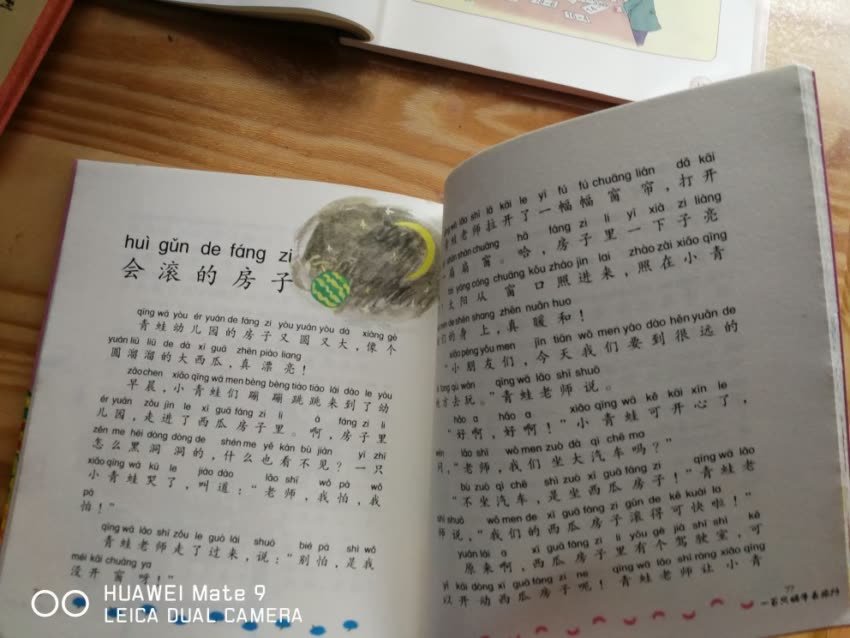 huì gǔn de fáng zi
会滚的房子
qīng wā yòu ér yuán de fáng zi yòu yuán yòu dà xiàng gè
青蛙幼儿园的房子又圆又大，像个
yuán liū liū de dà xī guā zhēn piào liang
圆溜溜的大西瓜，真漂亮！
zǎo chen xiǎo qīng wā men bèng bèng tiào tiào lái dào le yòu
早晨，小青蛙们蹦蹦跳跳来到了幼
ér yuán zǒu jìn le xī guā fáng zi li ā fáng zi li
儿园，走进了西瓜房子里。啊，房子里
zěn me hēi dòng dòng de shén me yě kàn bù jiàn yì zhī
怎么黑洞洞的，什么也看不见？一只
xiǎo qīng wā kū le jiào dào lǎo shī wǒ pà wǒ
小青蛙哭了，叫道：“老师，我怕，我
pà
怕！”
qīng wā lǎo shī zǒu le guò lái shuō bié pà shì wǒ
青蛙老师走了过来，说：“别怕，是我
méi kāi chuāng ya
没开窗呀！”
wā lǎo shī lā kāi le yì fú fú chuāng lián dǎ kāi
蛙老师拉开了一幅幅窗帘，打开
shàn shàn chuāng hā fáng zi li yí xià zi liàng
扇扇窗。哈，房子里一下子亮
tài yáng cóng chuāng kǒu zhào jìn lai zhào zài xiǎo qīng
太阳从窗口照进来，照在小青
men de shēn shang zhēn nuǎn huo
们的身上，真暖和！
xiǎo péng yǒu men jīn tiān wǒ men yào dào hěn yuǎn de
“小朋友们，今天我们要到很远的
fang qù wán qīng wā lǎo shī shuō
地方去玩。”青蛙老师说。
hǎo a hǎo a xiǎo qīng wā kě kāi xīn le
“好啊，好啊！”小青蛙可开心了，
wèn lǎo shī wǒ men zuò dà qì chē ma
问，“老师，我们坐大汽车吗？”
bú zuò qì chē shì zuò xī guā fáng zi qīng wā lǎo
“不坐汽车，是坐西瓜房子！”青蛙老
shī shuō wǒ men de xī guā fáng zi gǔn de kě kuài la
师说，“我们的西瓜房子滚得可快啦！”
yuán lái a xī guā fáng zi li yǒu gè jià shǐ shì kě
原来啊，西瓜房子里有个驾驶室，可
yǐ kāi dòng xī guā fáng zi ne qīng wā lǎo shī ràng xiǎo qīng
以开动西瓜房子呢！青蛙老师让小青
77
HUAWEI Mate 9
LEICA DUAL CAMERA